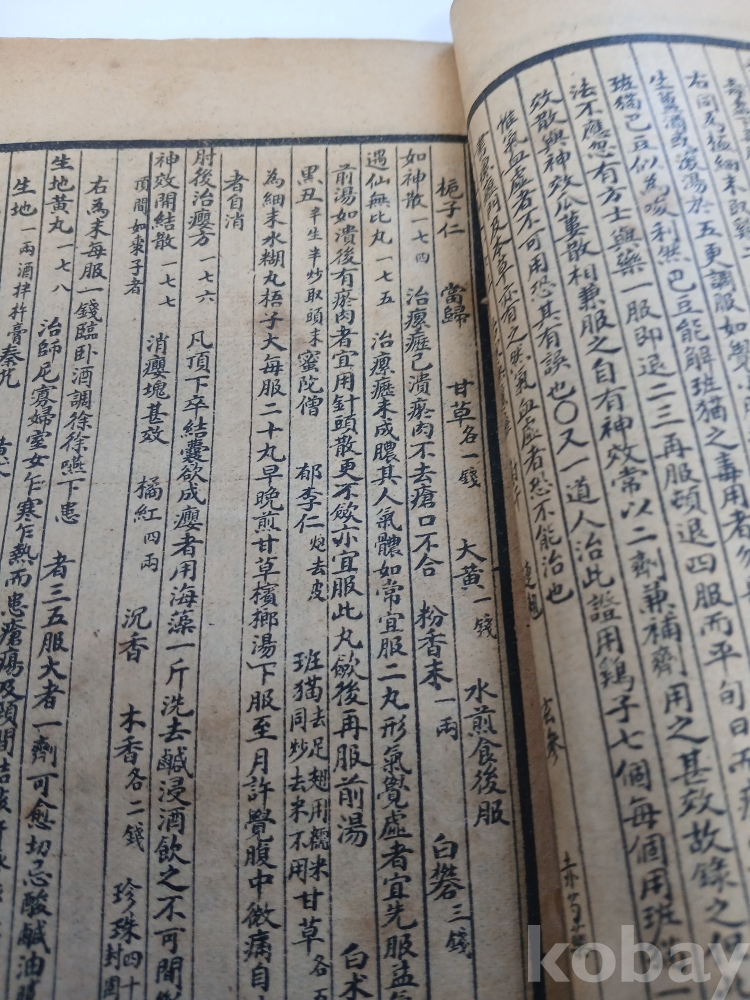 生薑酒或濃湯於五更調服如覺
班猫巴豆似為峻利然巴豆能解班猫之毒用者勿
法不應忽有方士與藥一服即退二三再服頓退四服而平旬日而
效散與神效瓜蔞散相兼服之自有神效常以二劑兼補劑用之甚效故錄之
惟氣血虛者不可用恐其有誤也〇又一道人治此證用鷄子七個每個用班
及本草亦有之然氣血虛者恐不能治也
玄參
梔子仁 當歸 甘草各一錢 大黃一錢 水煎食後服
如神散一七四 治瘰癧已潰瘀肉不去瘡口不合 粉香末一兩 白礬三錢
遇仙無比丸一七五 治瘰癧未成膿其人氣體如常宜服二丸形氣覺虛者宜先服益氣
前湯如潰後有瘀肉者宜用針頭散更不斂亦宜服此丸斂後再服前湯 白术
黑丑半生半炒取頭末 蜜陀僧 郁李仁炮去皮 班猫去足翅用糯米同炒去米不用 甘草各五
為細末水糊丸梧子大每服二十丸早晚煎甘草檳榔湯下服至月許覺腹中微痛自
者自消
肘後治癭方一七六 凡頂下卒結囊欲成癭者用海藻一斤洗去鹹浸酒飲之不可間
神效開結散一七七 消癭塊甚效 橘紅四兩 沉香 木香各二錢 珍珠四十
頂間如棗子者
右為末每服一錢臨卧酒調徐徐嚥下患 者三五服大者一劑可愈切忌酸鹹油膩
生地黃丸一七八 治師尼寡婦室女乍寒乍熱而患瘡瘍及頸間結核
生地一兩酒拌杵膏 秦艽
kobay